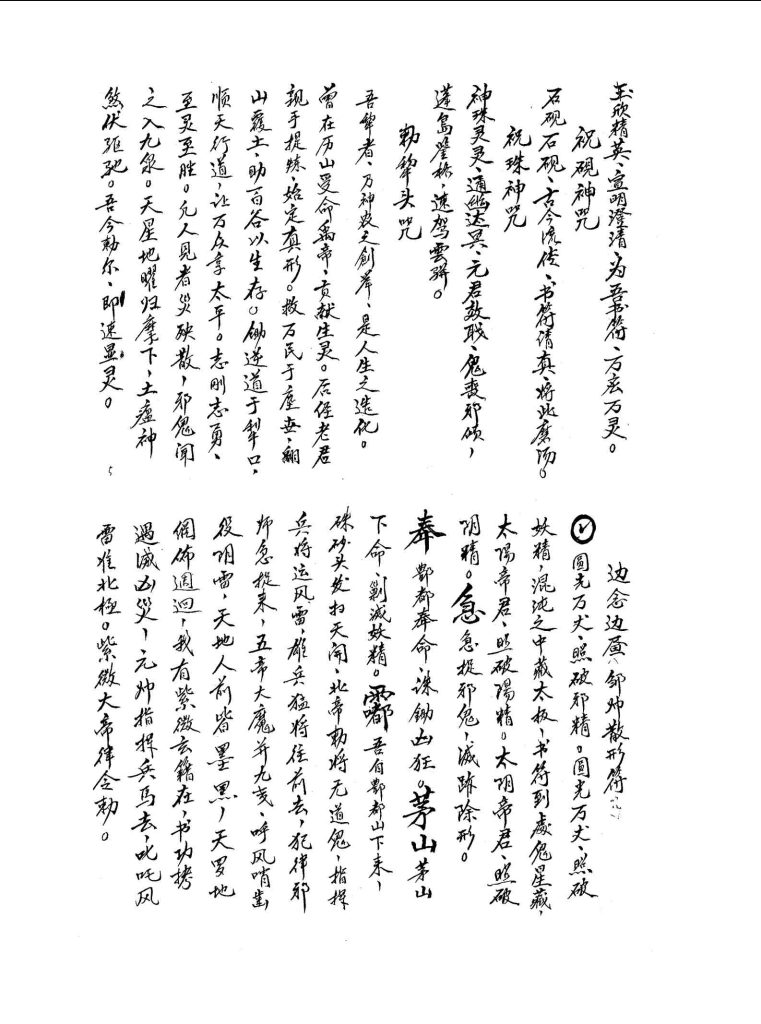 玉欣精英、宣明澄清、为吾书符、方玄万灵。
祝砚神咒
石砚石砚、古今流传、书符清真、将此磨汤。
祝珠神咒
神珠灵灵、通幽达冥、元君效职、鬼丧邪倾，
蓬岛 速驾雲骈。
勅犂头咒
吾犂者、万神农之創举、是人生之造化。
曾在历山受命禹帝、贡献生灵。后经老君
親手提炼、始定真形。救万民于座世、翻
山覆土、助百谷以生存。锄逆道于犁口，
顺天行道，让万众享太平。志刚志勇、
至灵至胜。凡人見者災殃散，邪鬼闻
之入九泉。天星地曜归麾下，土瘟神
煞伏驱驰。吾今勅尔、即速显灵。
边念边画、邹帅散形符
圓光万丈、照破邪精。圓光万丈、照破
妖精，混沌之中藏太极，书符到處鬼星藏，
太陽帝君、照破陽精。太阴帝君、照破
阴精。急急捉邪鬼，滅跡除形。
奉酆都奉命、诛锄凶狂。茅山茅山
下命、剿滅妖精。吾自酆都山下来，
硃砂头发扫天開、北帝勅将元道鬼，指揮
兵将运风雷，雄兵猛将往前去，犯律邪
师急捉来，五帝大魔并九曵、呼风哨
役阴雷，天地人前皆墨黑，天罗地
網佈週迴，我有紫微玄籍在，书功拷
遇滅凶災，元帅指揮兵马去，叱吒风
雷准北極。紫微大帝律令勅。